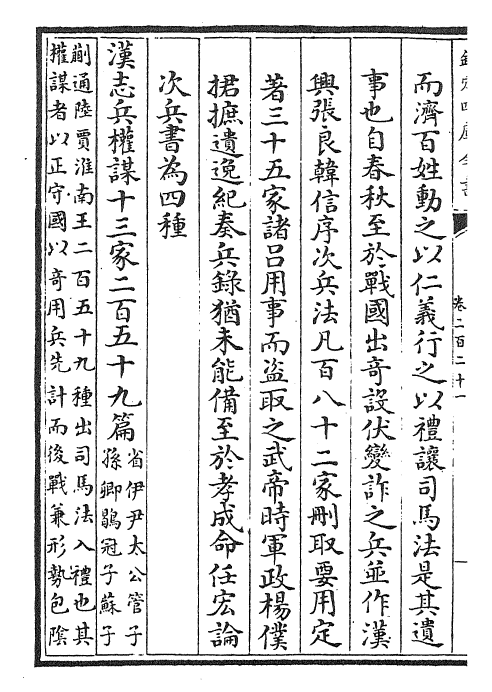 欽定四庫全書
卷二百二十一
而濟百姓動之以仁義行之以禮讓司馬法是其遺
事也自春秋至於戰國出奇設伏變詐之兵並作漢
興張良韓信序次兵法凡百八十二家刪取要用定
著三十五家諸呂用事而盜取之武帝時軍政楊僕
捃摭遺逸紀奏兵錄猶未能備至於孝成命任宏論
次兵書為四種
漢志兵權謀十三家二百五十九篇
省伊尹太公管子
孫卿鶡冠子蘇子
蒯通陸賈淮南王二百五十九種出司馬法入禮也其
權謀者以正守國以奇用兵先計而後戰兼形勢包陰